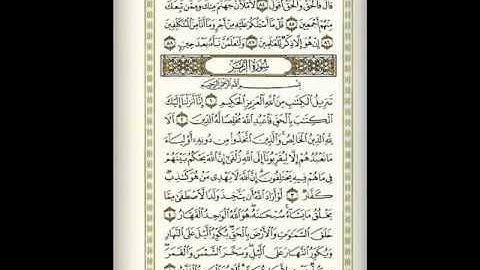 قَالَ فَالْحَقُّ وَالْحَقَّ أَقُولُ ٨٤ لَأَمْلَأَنَّ جَهَنَّمَ مِنكَ وَمِمَّن تَبِعَكَ
مِنْهُمْ أَجْمَعِينَ ٨٥ قُلْ مَا أَسْـَٔلُكُمْ عَلَيْهِ مِنْ أَجْرٍ وَمَا أَنَا۠ مِنَ الْمُتَكَلِّفِينَ
٨٦ إِنْ هُوَ إِلَّا ذِكْرٌ لِّلْعَالَمِينَ ٨٧ وَلَتَعْلَمُنَّ نَبَأَهُ بَعْدَ حِينٍ ٨٨
سُورَةُ الزُّمَرِ
بِسْمِ اللَّهِ الرَّحْمَٰنِ الرَّحِيمِ
تَنزِيلُ الْكِتَٰبِ مِنَ اللَّهِ الْعَزِيزِ الْحَكِيمِ ١ إِنَّا أَنزَلْنَا إِلَيْكَ
الْكِتَٰبَ بِالْحَقِّ فَاعْبُدِ اللَّهَ مُخْلِصًا لَّهُ الدِّينَ ٢ أَلَا
لِلَّهِ الدِّينُ الْخَالِصُ وَالَّذِينَ اتَّخَذُوا مِن دُونِهِ أَوْلِيَاءَ
مَا نَعْبُدُهُمْ إِلَّا لِيُقَرِّبُونَا إِلَى اللَّهِ زُلْفَىٰ إِنَّ اللَّهَ يَحْكُمُ بَيْنَهُمْ
فِي مَا هُمْ فِيهِ يَخْتَلِفُونَ إِنَّ اللَّهَ لَا يَهْدِي مَنْ هُوَ كَٰذِبٌ
كَفَّارٌ ٣ لَّوْ أَرَادَ اللَّهُ أَن يَتَّخِذَ وَلَدًا لَّاصْطَفَىٰ مِمَّا
يَخْلُقُ مَا يَشَاءُ سُبْحَٰنَهُ هُوَ اللَّهُ الْوَٰحِدُ الْقَهَّارُ ٤
خَلَقَ السَّمَٰوَٰتِ وَالْأَرْضَ بِالْحَقِّ يُكَوِّرُ الَّيْلَ عَلَى النَّهَارِ
وَيُكَوِّرُ النَّهَارَ عَلَى الَّيْلِ وَسَخَّرَ الشَّمْسَ وَالْقَمَرَ